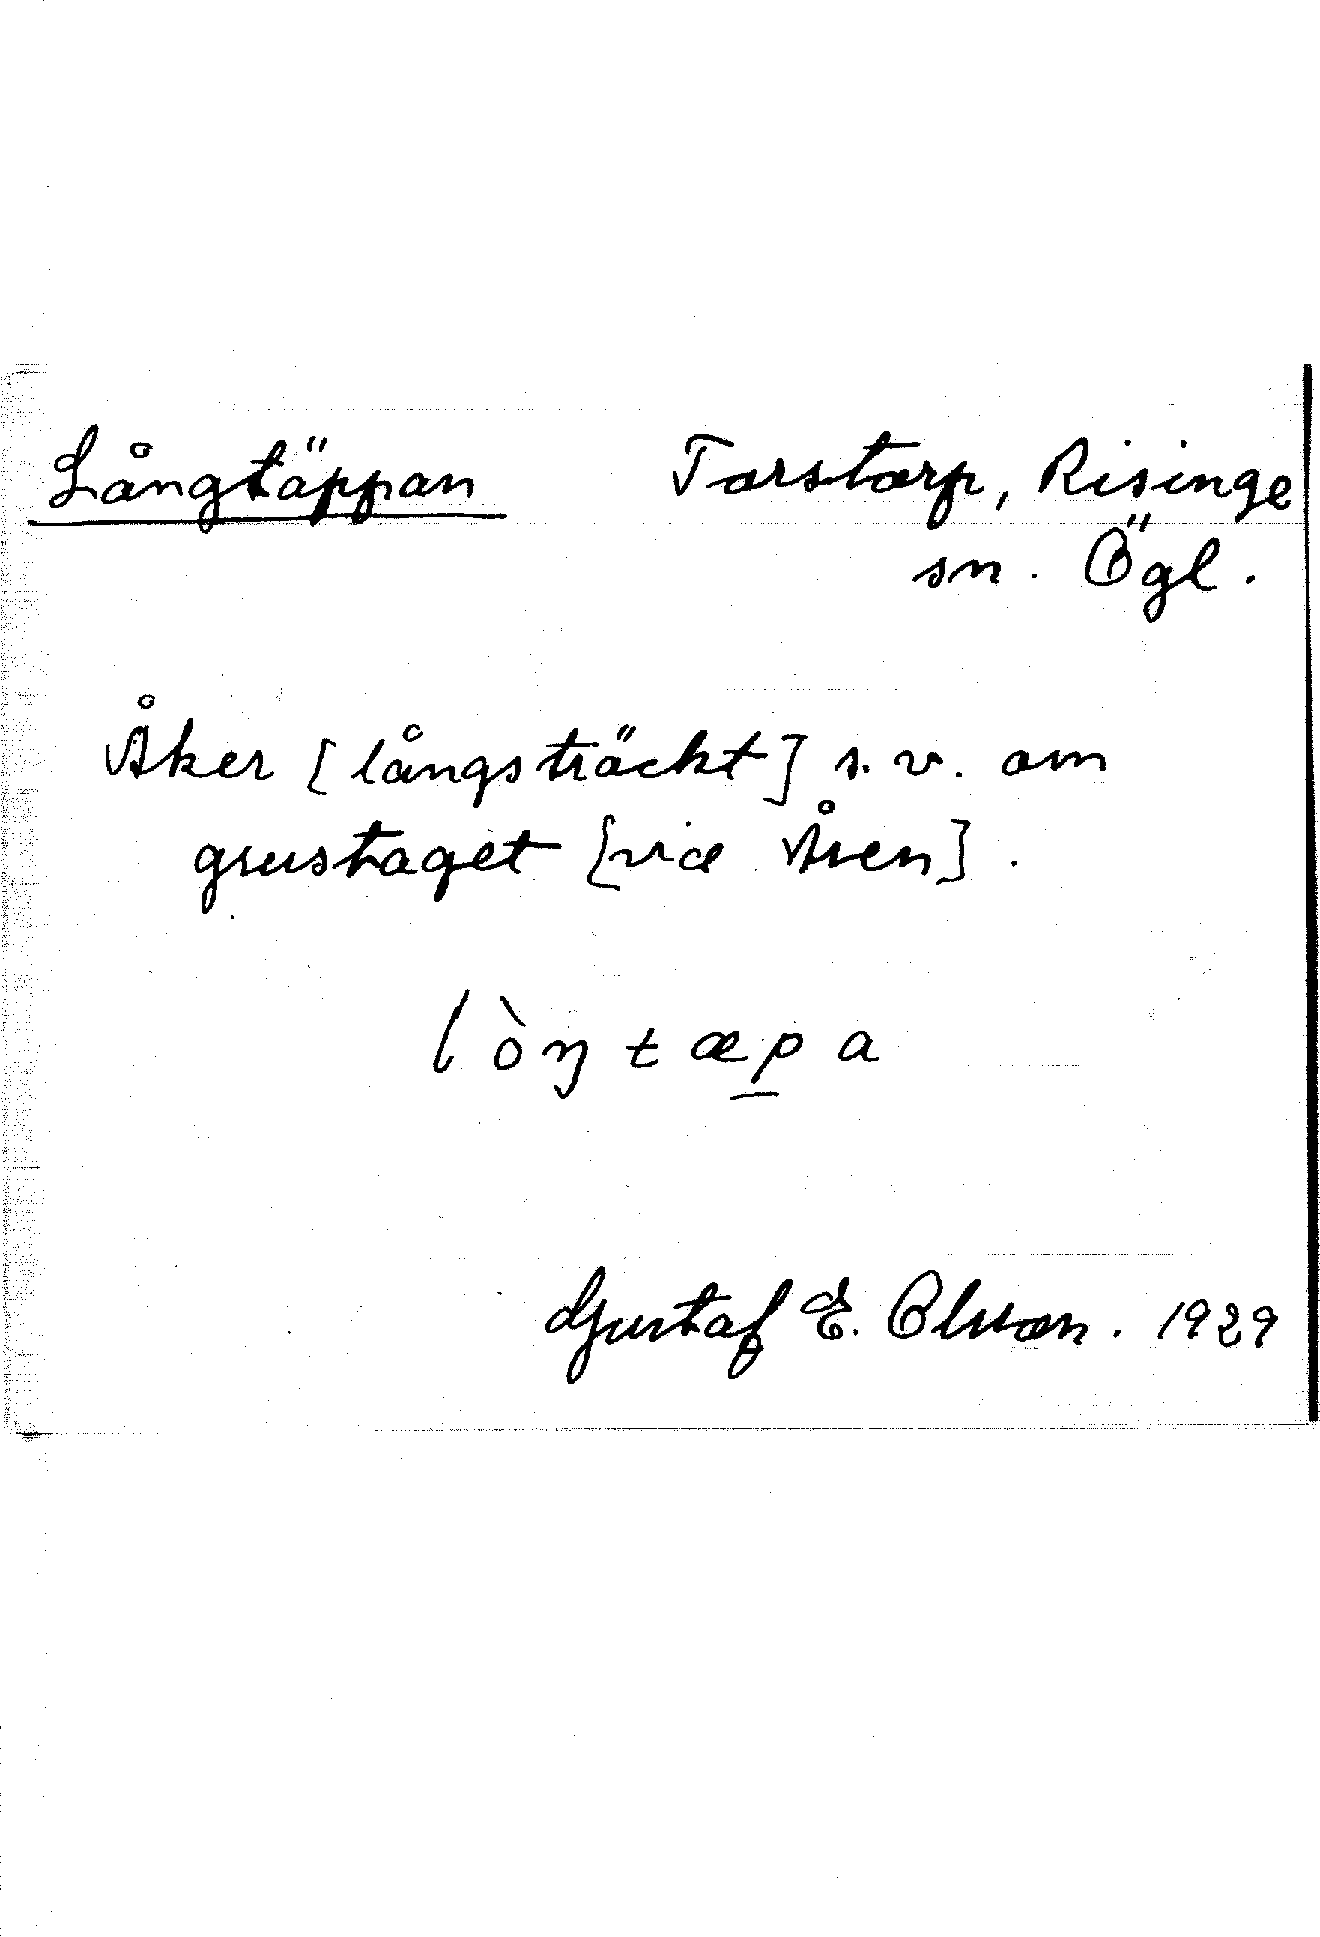 Långtäppan Torstorp, Risinge
sn. Ögl.
Åker [långsträckt] s.v. om
grustaget [vid Åsen].
lòŋtæp̲a
Gustaf E. Olsson. 1929